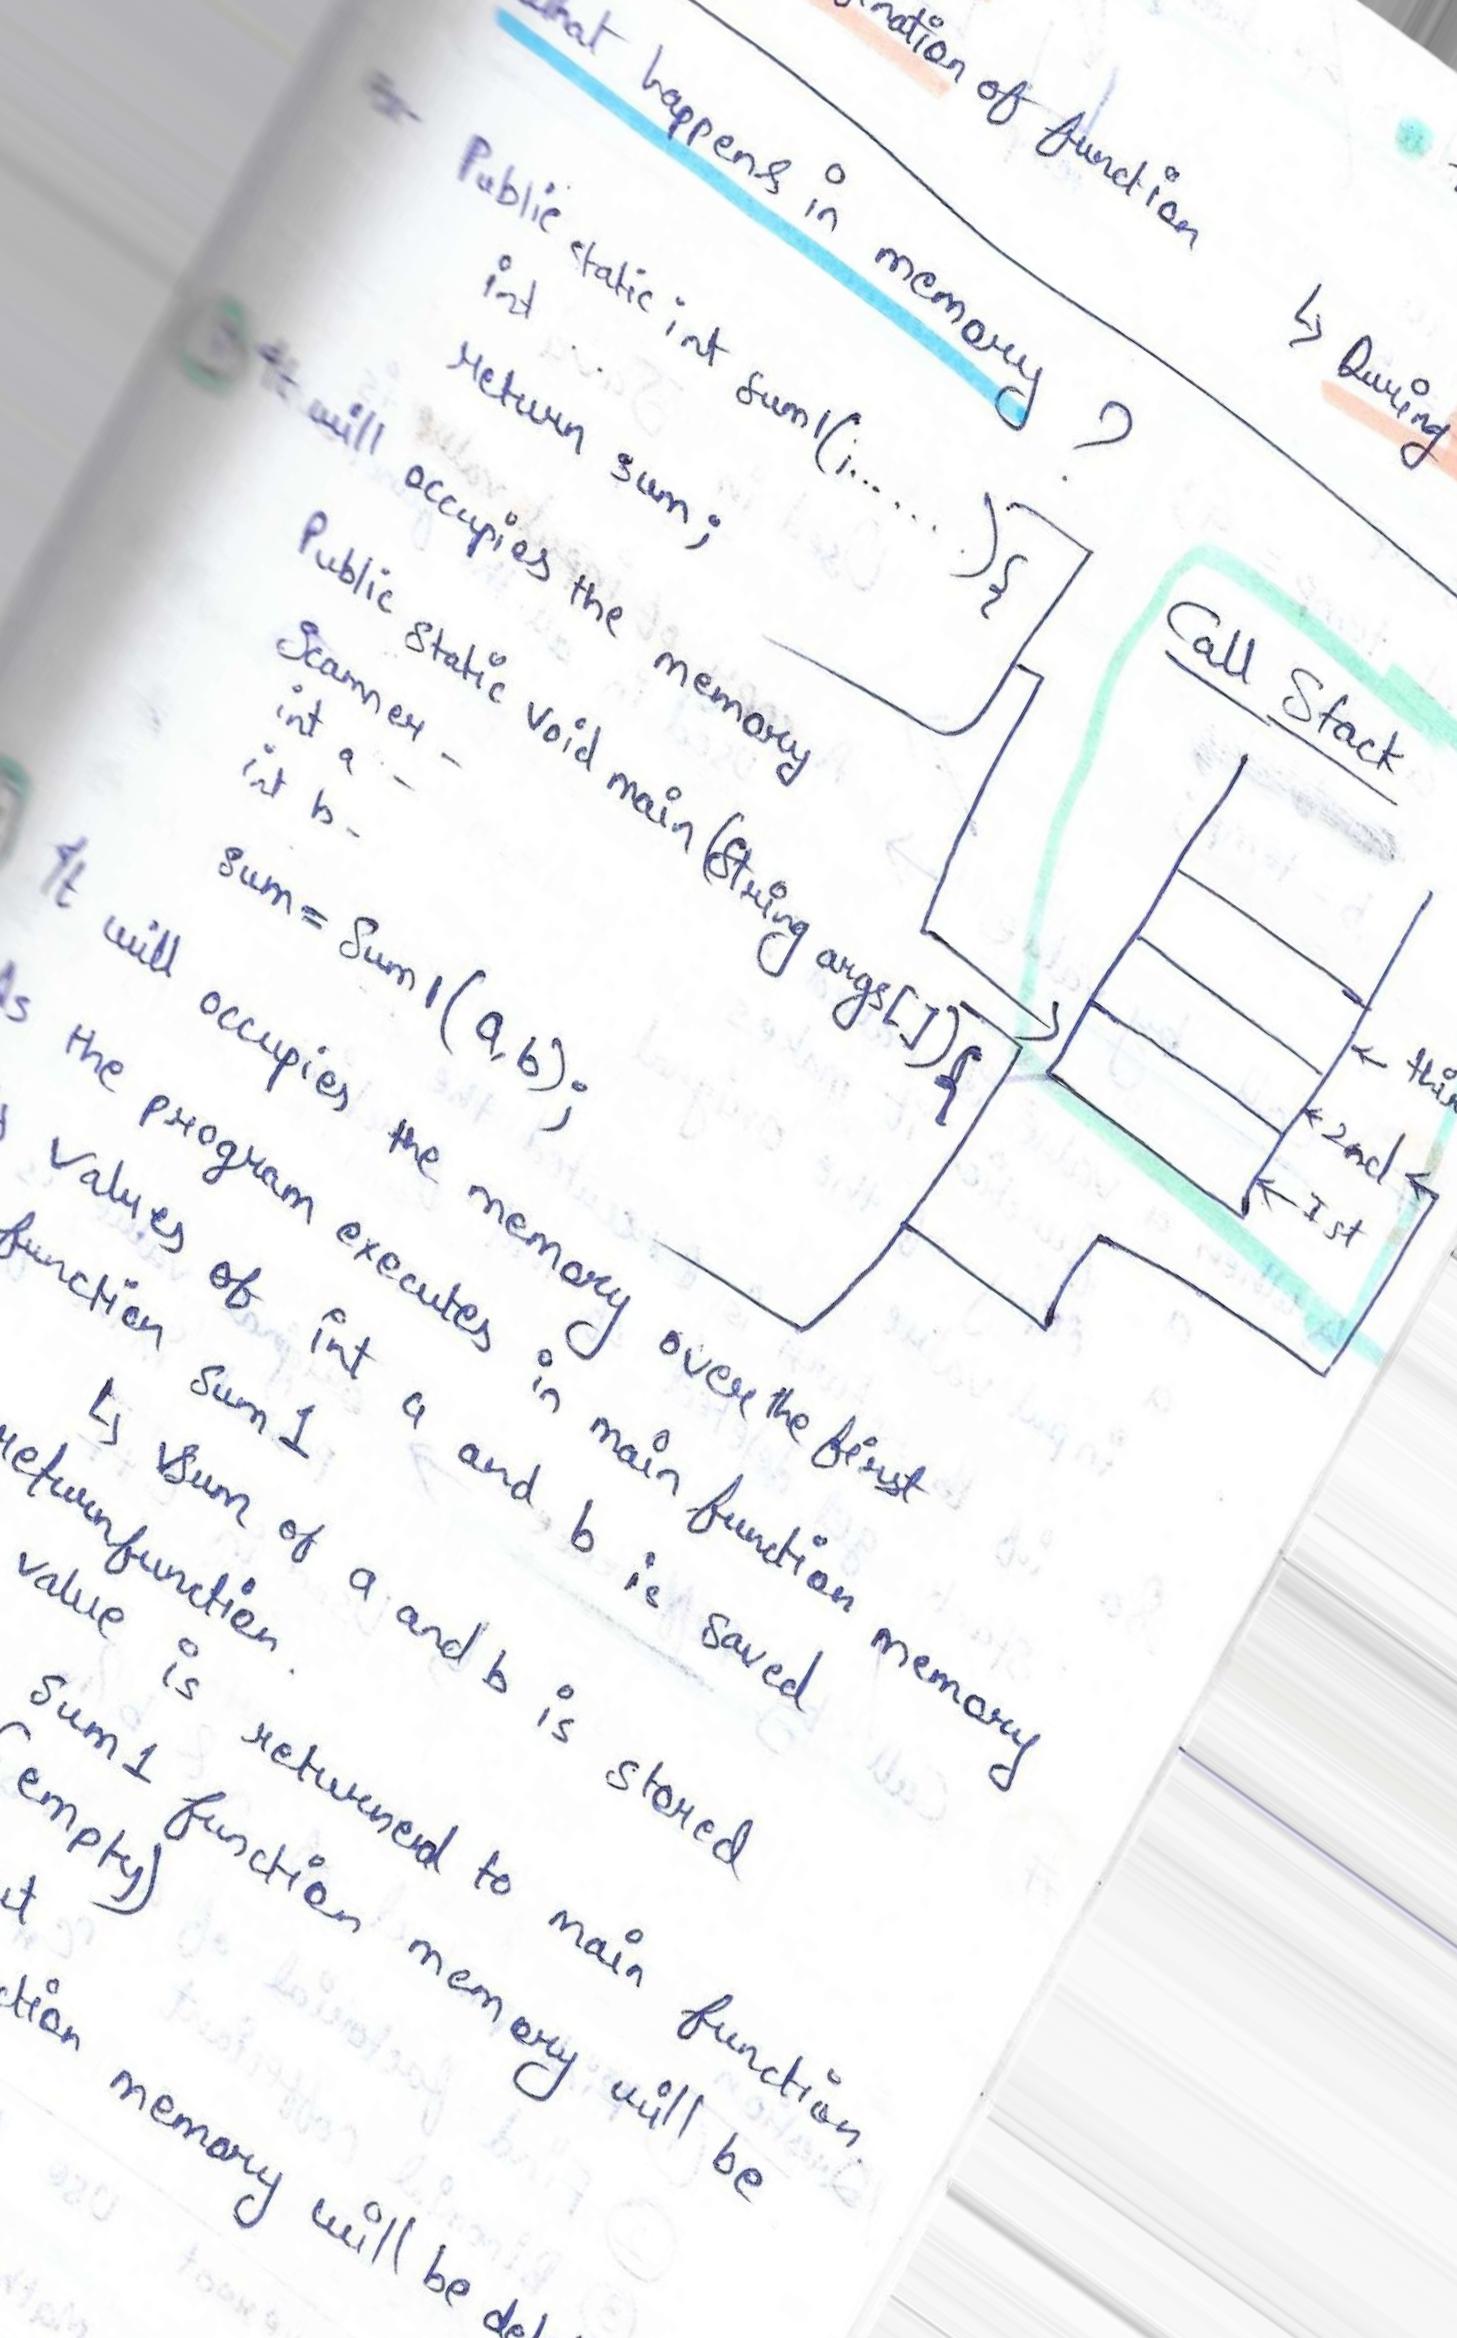 of function
↳ During
What happens in memory ?
Public static int sum1(i.......){
int ...
return sum;
It will occupies the memory
Call Stack
Public static void main(String args[]){
Scanner -
int a -
int b -
sum = Sum1(a,b);
← 2nd
← 1st
It will occupies the memory over the first
As the program executes in main function memory
values of int a and b is saved
function sum1
↳ Sum of a and b is stored
return function.
value is returned to main function
sum1 function memory will be
(empty)
memory will be